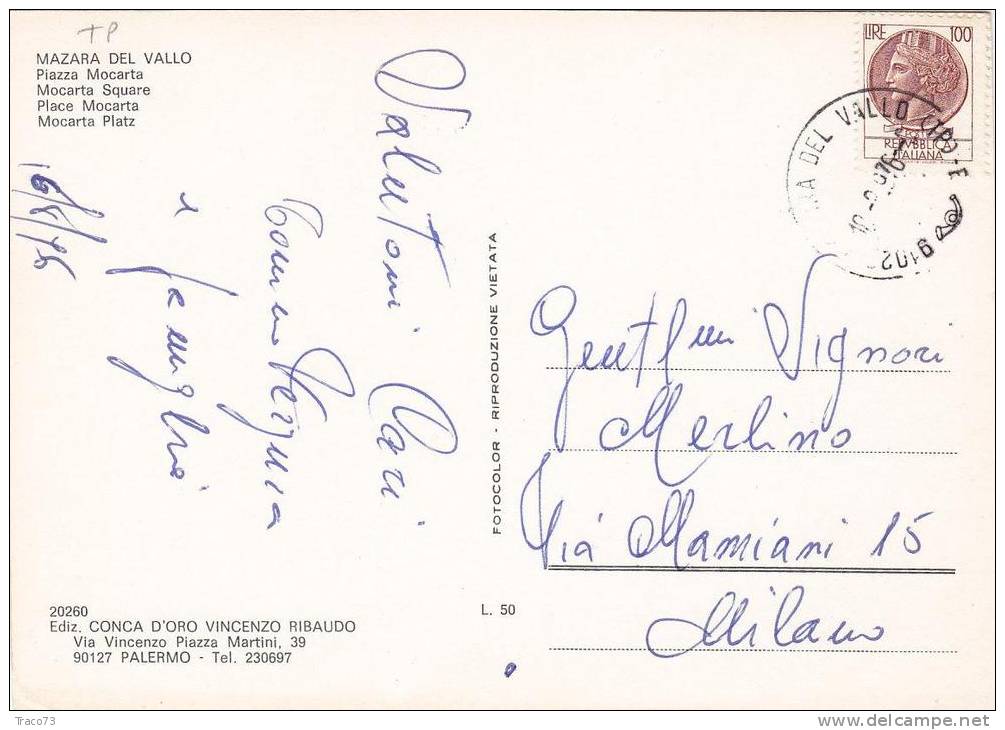 TP
MAZARA DEL VALLO
Piazza Mocarta
Mocarta Square
Place Mocarta
Mocarta Platz
Valutoni Cari
e famiglia
FOTOCOLOR - RIPRODUZIONE VIETATA
LIRE 100
POSTE
REPVBBLICA
ITALIANA
DEL VALLO (TP) - E
9102
Gentl.mi Signori
Merlino
Via Mamiani 15
Milano
20260
Ediz. CONCA D'ORO VINCENZO RIBAUDO
Via Vincenzo Piazza Martini, 39
90127 PALERMO - Tel. 230697
L. 50
Traco73